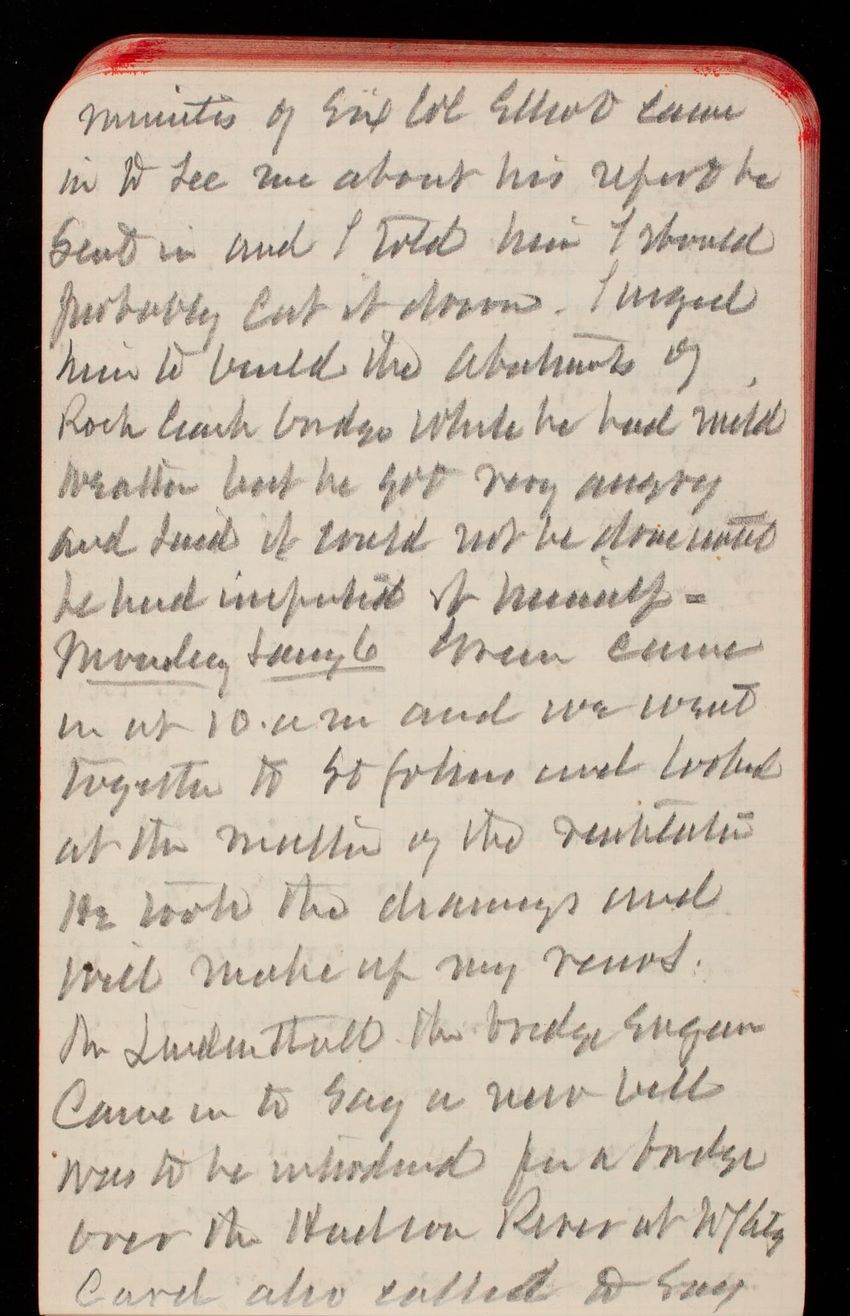 minutes of Six Col Elliot came
in to see me about his report he
Sent in and I told him I should
probably cut it down. I urged
him to build the abutments of
Rock Creek bridge while he had mild
weather but he got very angry
and said it could not be done until
he had inspected it himself =
Monday Jany 6 Green came
in at 10. a m and we went
together to St Johns and looked
at the matter of the ventilation
He took the drawings and
will make up my
Mr Lindenthall the bridge Engineer
Came in to Say a new bill
was to be introduced for a bridge
over the Hudson River at N Y City
also called to Say